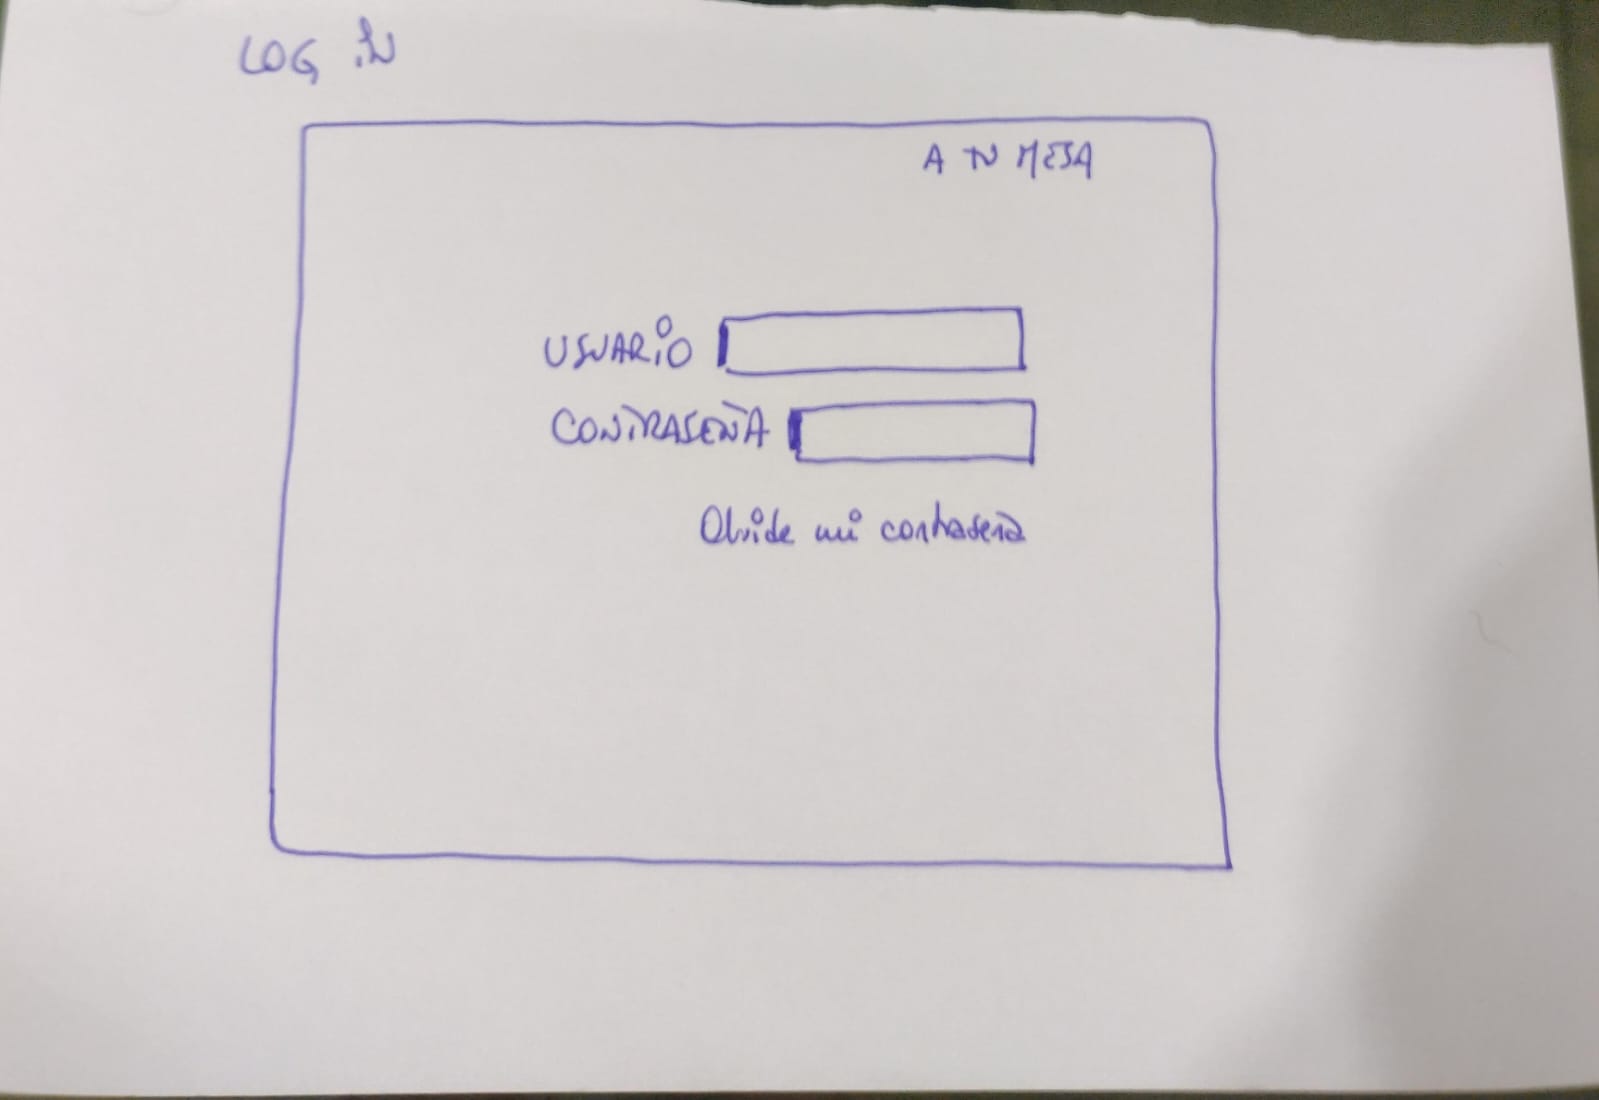 LOG iN
A TU MESA
USUARiO
CONTRASEÑA
Olvide mi contraseña